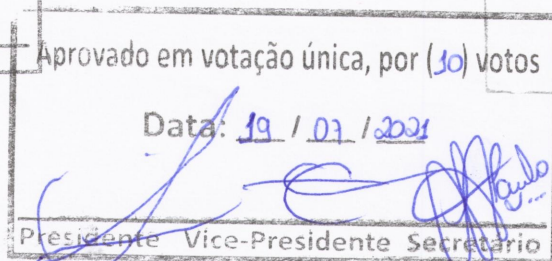 Aprovado em votação única, por (10) votos
Data: 19 / 07 / 2021
Paulo
Presidente Vice-Presidente Secretário